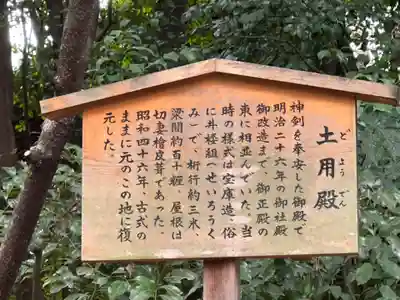 土用殿
どようでん
神剣を奉安した御殿で
明治二十六年の御社殿
御改造まで、御正殿の
東に相並んでいた。当
時の様式は宝庫造、俗
に井楼組(せいろうぐ
み)で、桁行約三米、
梁間約百十糎、屋根は
切妻檜皮葺であった。
昭和四十六年、古式の
ままに元のこの地に復
元した。